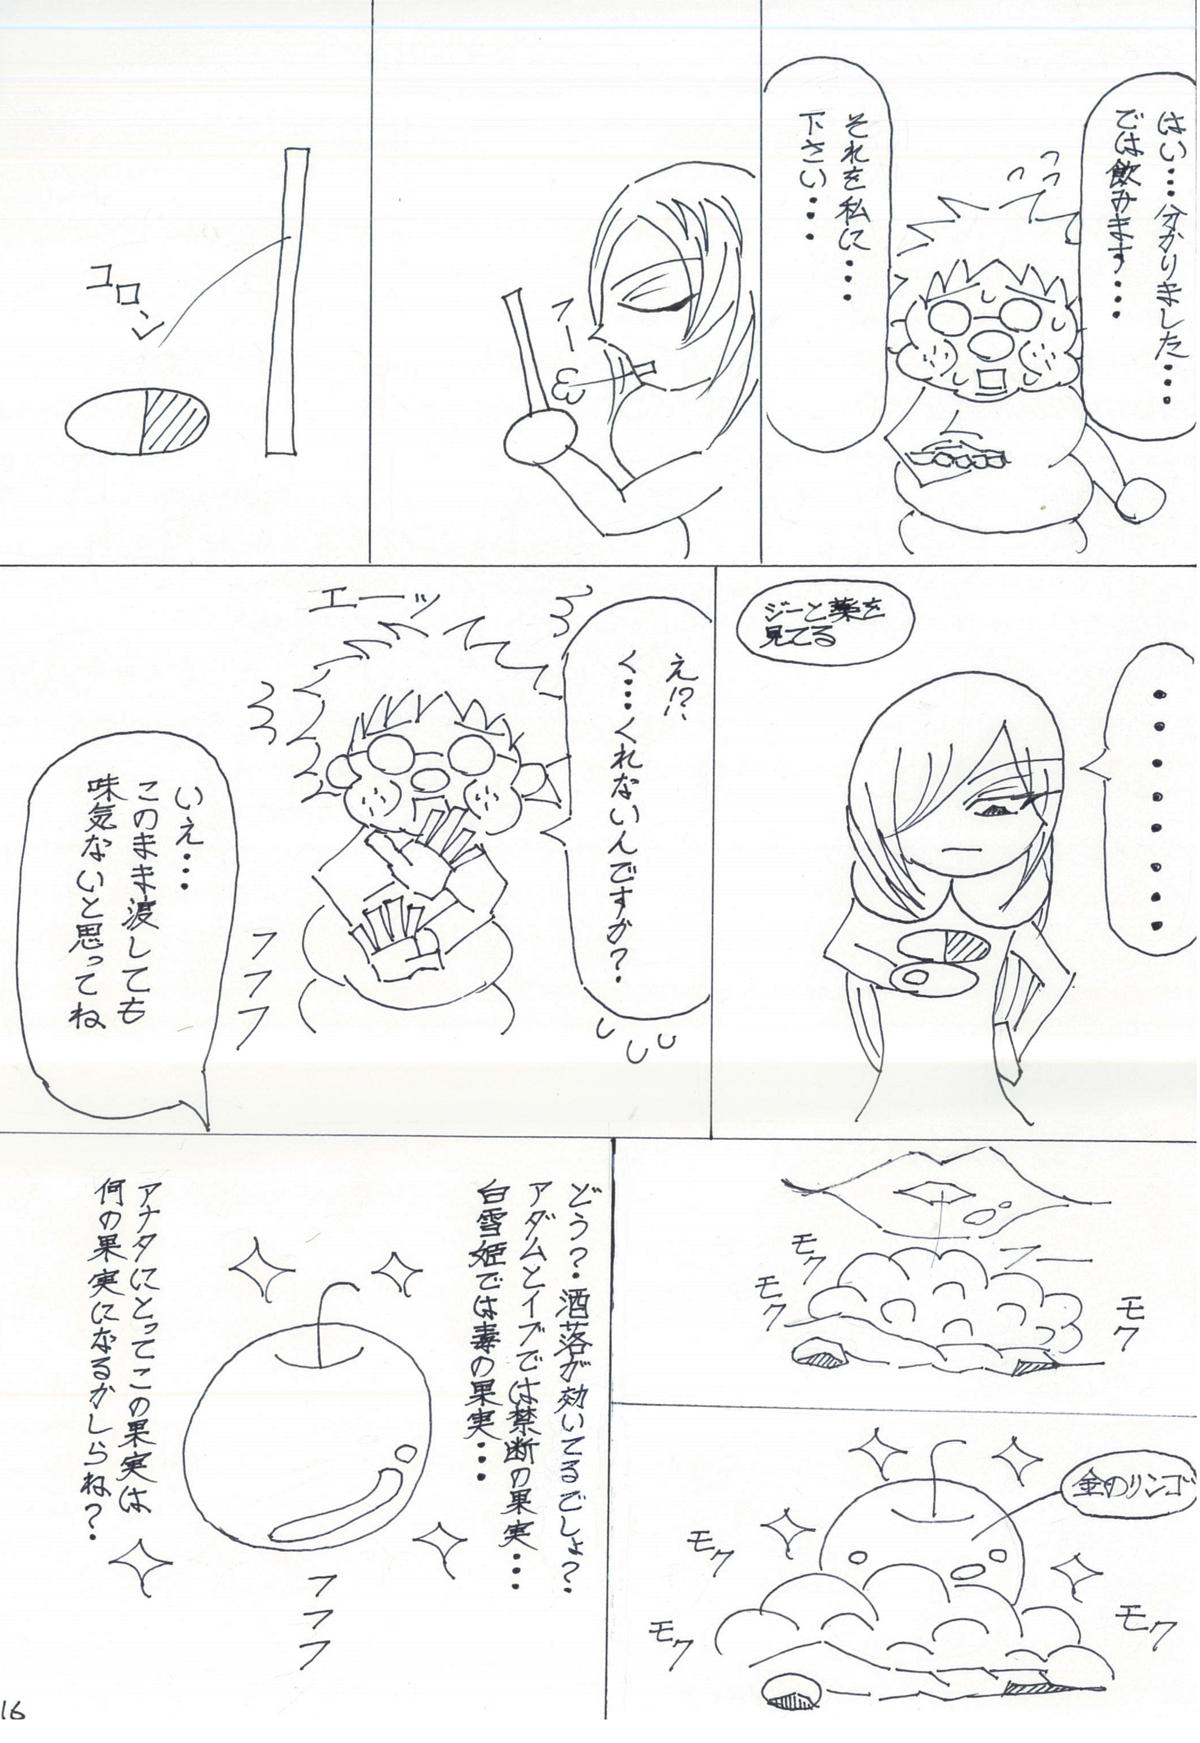 はい…分かりました…
では飲みます…
それを私に…
下さい…
フー
コロン
・・・・・・・・
ジーと薬を
見てる
え!?
く…くれないんですか？
エーッ
フフフ
いえ…
このまま渡しても
味気ないと思ってね
フー
モク
モク
モク
金のリンゴ
モク
モク
モク
どう？洒落が効いてるでしょ？
アダムとイブでは禁断の果実…
白雪姫では毒の果実…
フフフ
アナタにとってこの果実は
何の果実になるかしらね？
16